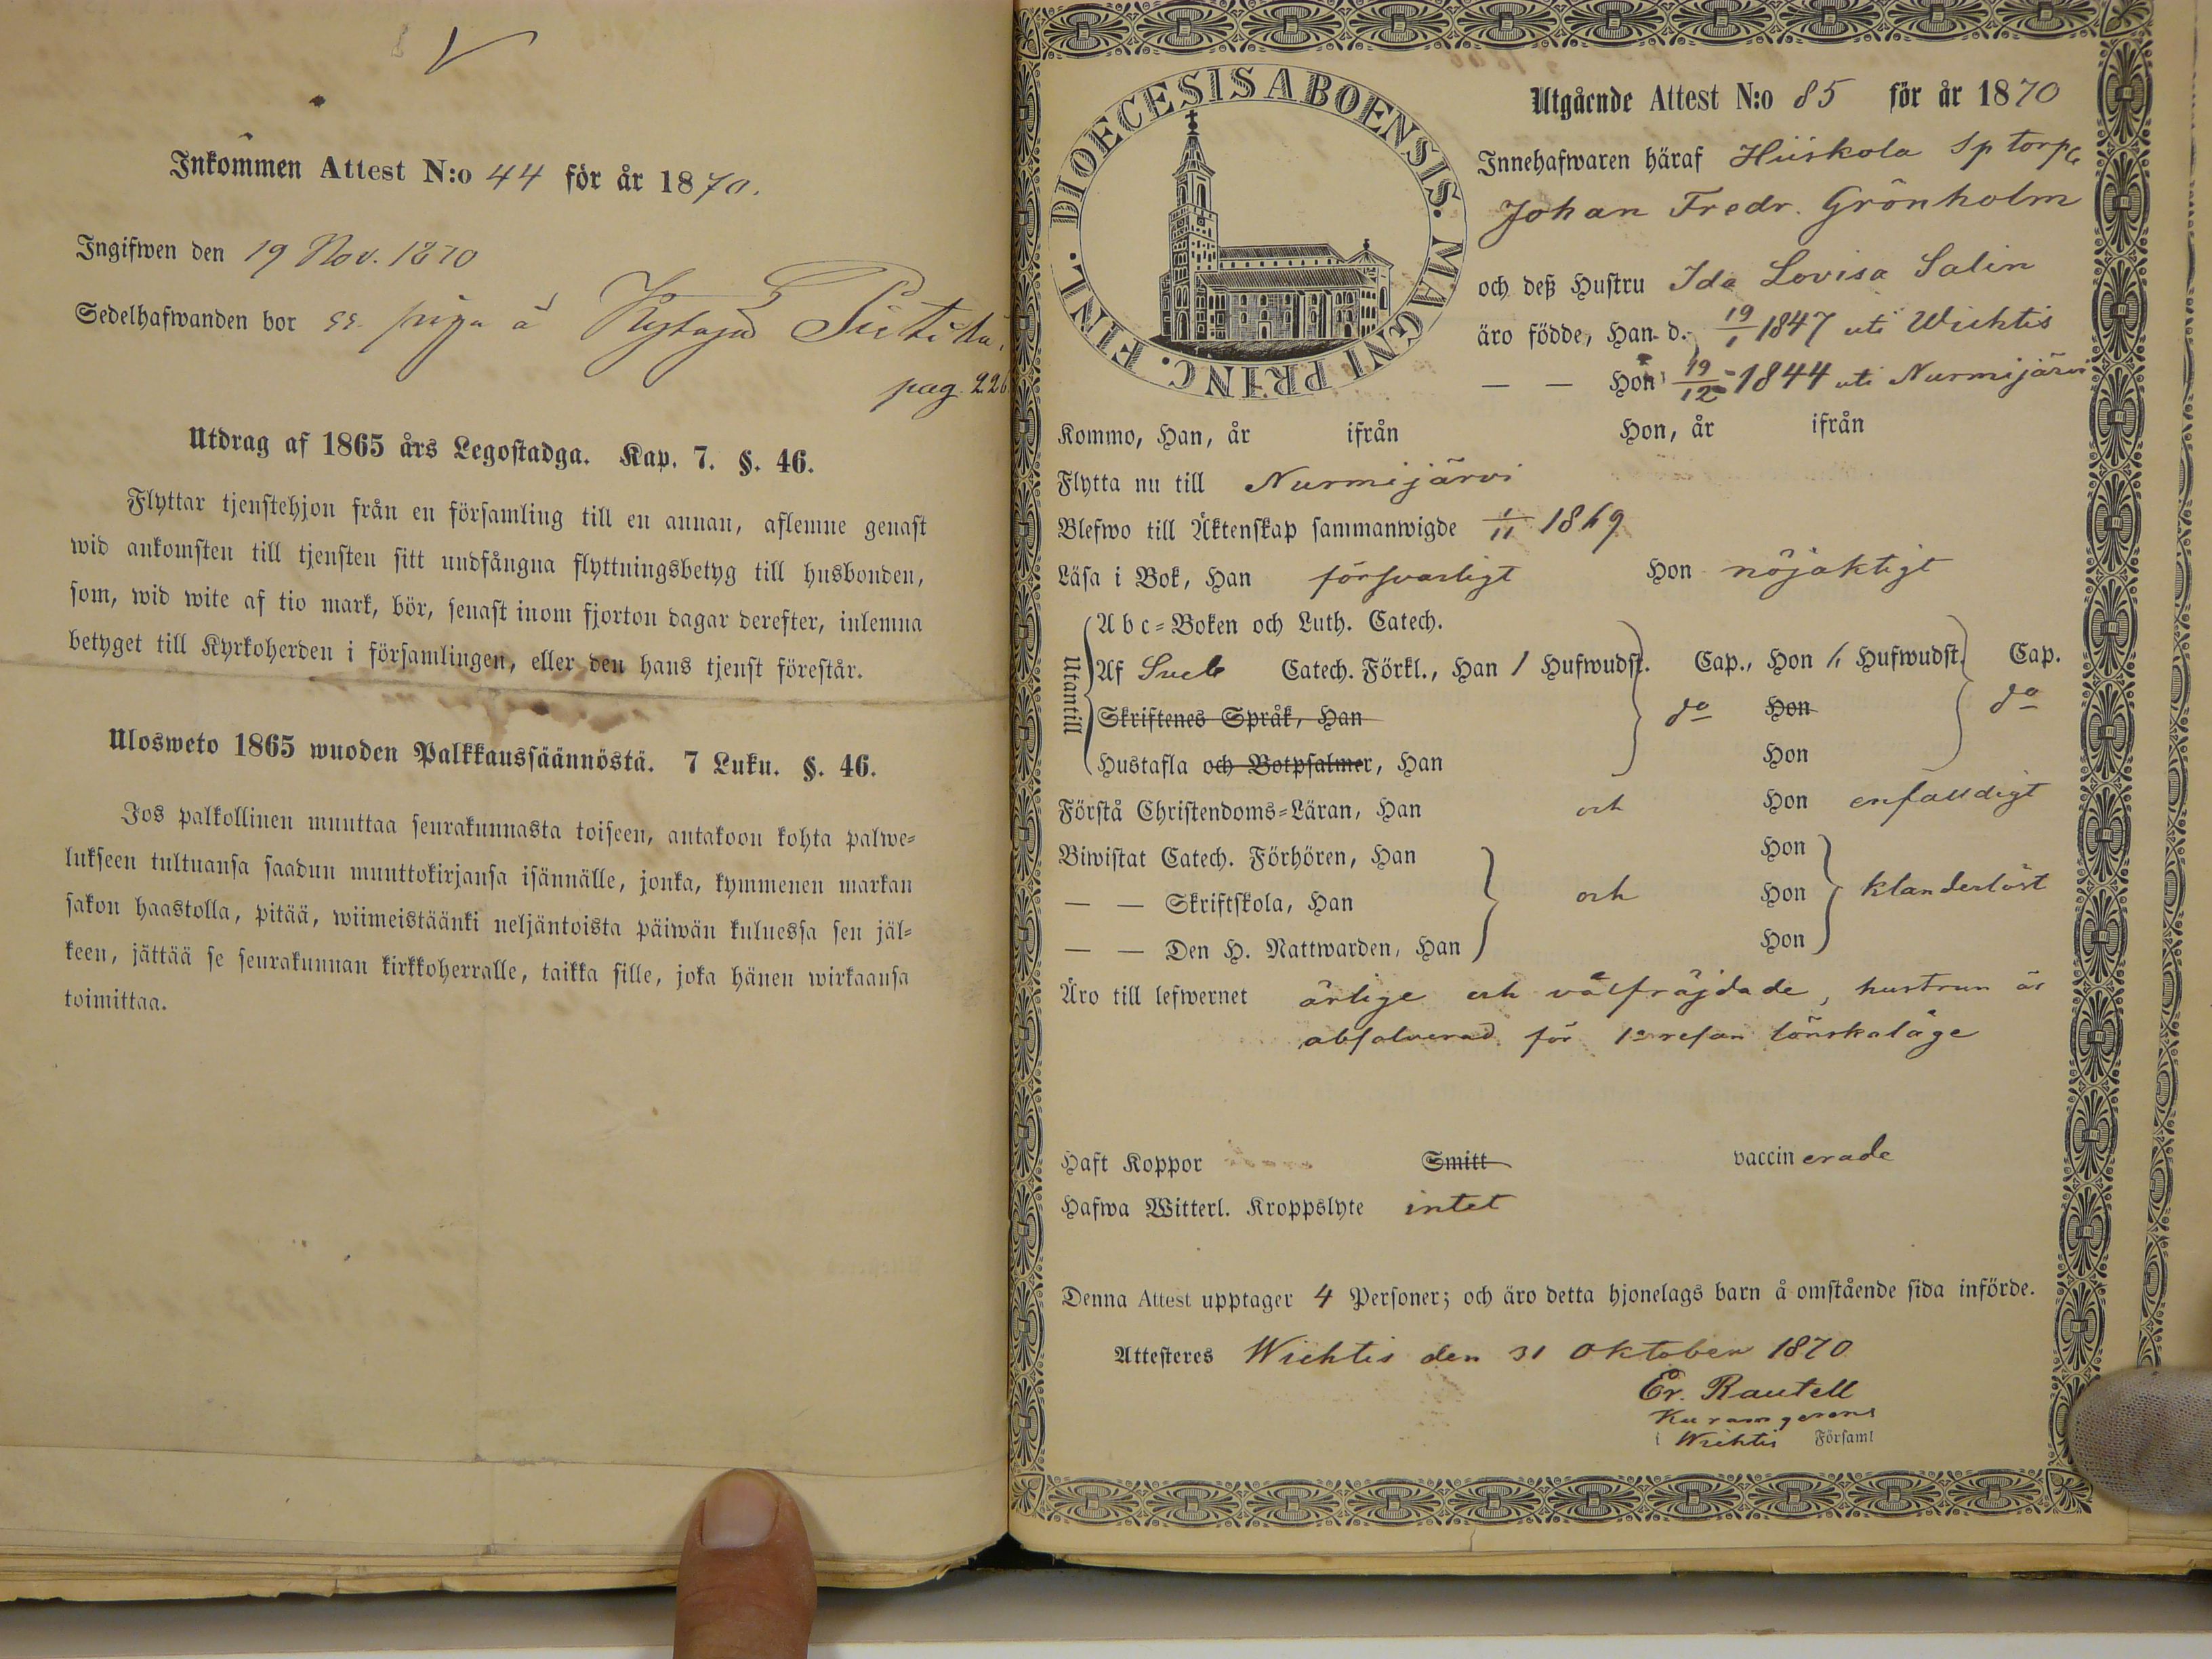 Inkommen Attest N:o 44 för år 1870.
Ingifwen den 19 Nov. 1870
Sedelhafwanden bor ss. piga å
pag. 226
Utdrag af 1865 års Legostadga. Kap. 7. §. 46.
Flyttar tjenstehjon från en församling till en annan, aflemne genast
wid ankomsten till tjensten sitt undfångna flyttningsbetyg till husbonden,
som, wid wite af tio mark, bör, senast inom fjorton dagar derefter, inlemna
betyget till Kyrkoherden i församlingen, eller den hans tjenst förestår.
Ulosweto 1865 wuoden Palkkaussäännöstä. 7 Luku. §. 46.
Jos palkollinen muuttaa seurakunnasta toiseen, antakoon kohta palwe-
lukseen tultuansa saadun muuttokirjansa isännälle, jonka, kymmenen markan
sakon haastolla, pitää, wiimeistäänki neljäntoista päiwän kuluessa sen jäl-
keen, jättää se seurakunnan kirkkoherralle, taikka sille, joka hänen wirkaansa
toimittaa.
DIOECESIS ABOENSIS. MAGNI PRINC. FINL.
Utgående Attest N:o 85 för år 1870
Innehafwaren häraf Hiiskola Sp torp
Johan Fredr. Grönholm
och deß Hustru Ida Lovisa Salin
äro födde, Han d. 19/1 1847 uti Wichtis
— — Hon 19/12 1844 uti Nurmijärvi
Kommo, Han, år ifrån Hon, år ifrån
Flytta nu till Nurmijärvi
Blefwo till Äktenskap sammanwigde 1/11 1869
Läsa i Bok, Han försvarligt Hon nöjaktigt
Utantill
A b c-Boken och Luth. Catech.
Af Sveb Catech. Förkl., Han 1 Hufwudst. Cap., Hon 1 Hufwudst. Cap.
Skriftenes Språk, Han do Hon do
Hustafla och Botpsalmer, Han Hon
Förstå Christendoms-Läran, Han och Hon enfaldigt
Biwistat Catech. Förhören, Han Hon
— — Skriftskola, Han och Hon klanderlöst
— — Den H. Nattwarden, Han Hon
Äro till lefwernet ärlige och välfräjdade, hustrun är
absolverad för 1a resan lönskaläge
Haft Koppor Smitt vaccinerade
Hafwa Witterl. Kroppslyte intet
Denna Attest upptager 4 Personer; och äro detta hjonelags barn å omstående sida införde.
Attesteres Wichtis den 31 Oktober 1870
Er. Rautell
Kuram gerens
i Wichtis Församl